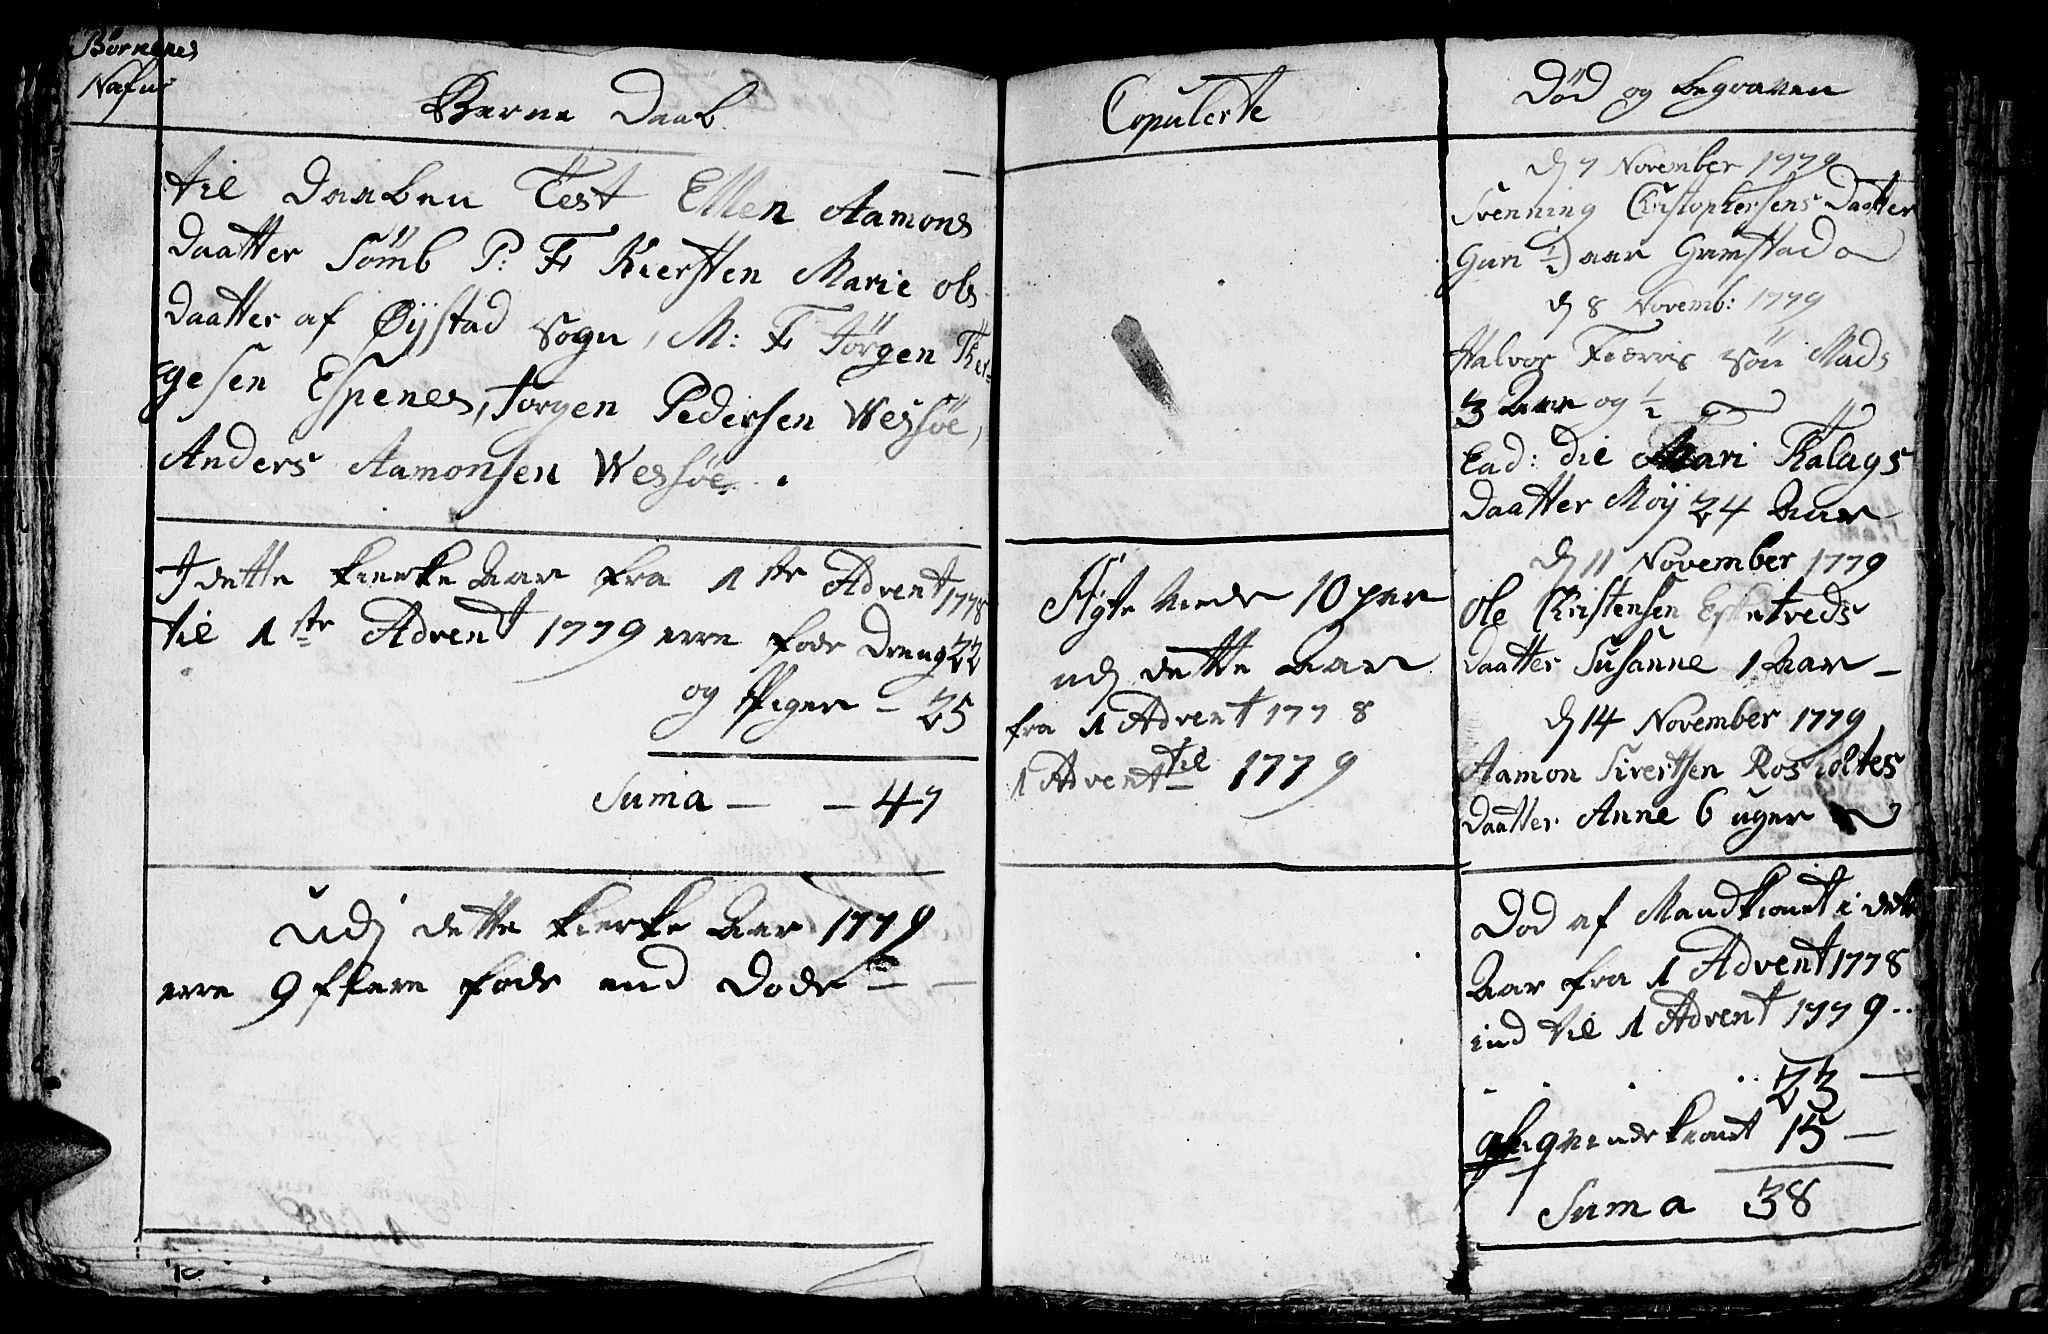 Børnenes
Nafne
Barne Daab
til Daaben Test Ellen Aamons
Daatter Sømb P: F Kiersten Marie ols
Daatter af Øijstad Sogn, M: F Jörgen Ter-
gesen Espenes, Jorgen Pedersen Wessøe,
Anders Aamonsen Wessøe.
I dette Kierke Aar fra 1ste Advent 1778
til 1ste Advent 1779 ere føde Dreng 22
og Piger – 25
Suma — — 47
Udj dette Kierke Aar 1779
ere 9 flere føde end Døde —
Copulerte
Ægte Viede 10 par
udj dette Aar
fra 1 Advent 1778
til
1 Advent 1779
Død og begraven
dj 7 November 1779
Svenning Christophersens Daatter
Guri ½ aar Grimstad
dj 8 Novemb: 1779
Halvor Fievigs Søn Mads
3 Aar og ½
Ead: die Mari Talags
Daatter Moÿ 24 Aar
dj 11 November 1779
Ole Christensen Esketveds
Daatter Susanne 1 Aar –
dj 14 November 1779
Aamon Sivertsen Rosholtes
Daatter Anne 6 uger
Død af Mandkiønet i dette
Aar fra 1 Advent 1778
ind til 1 Advent 1779..
23 —
qvindekiønet 15 —
Suma 38